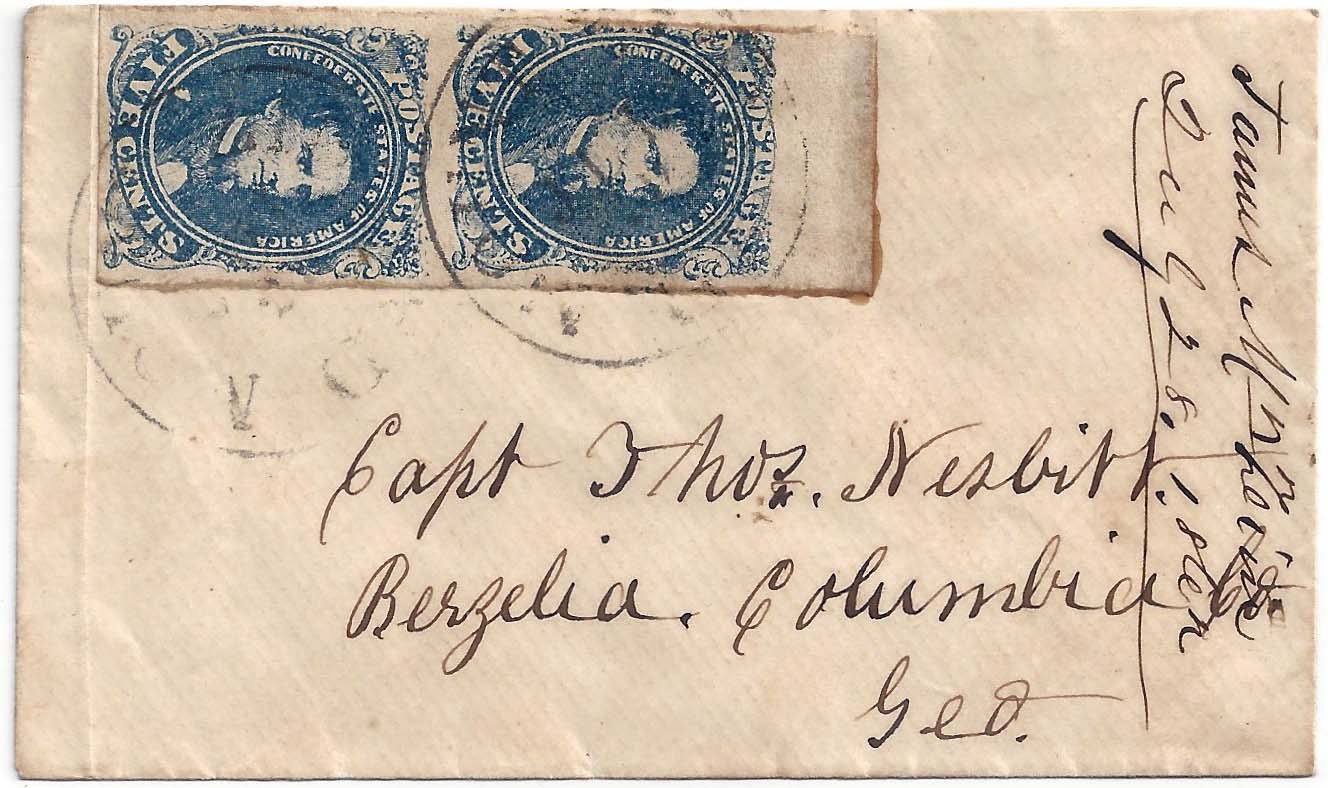 CONFEDERATE STATES OF AMERICA
POSTAGE
FIVE CENTS
CONFEDERATE STATES OF AMERICA
POSTAGE
FIVE CENTS
VA
Capt Thos. Nesbitt.
Berzelia. Columbia Co
Geo.
James
28,